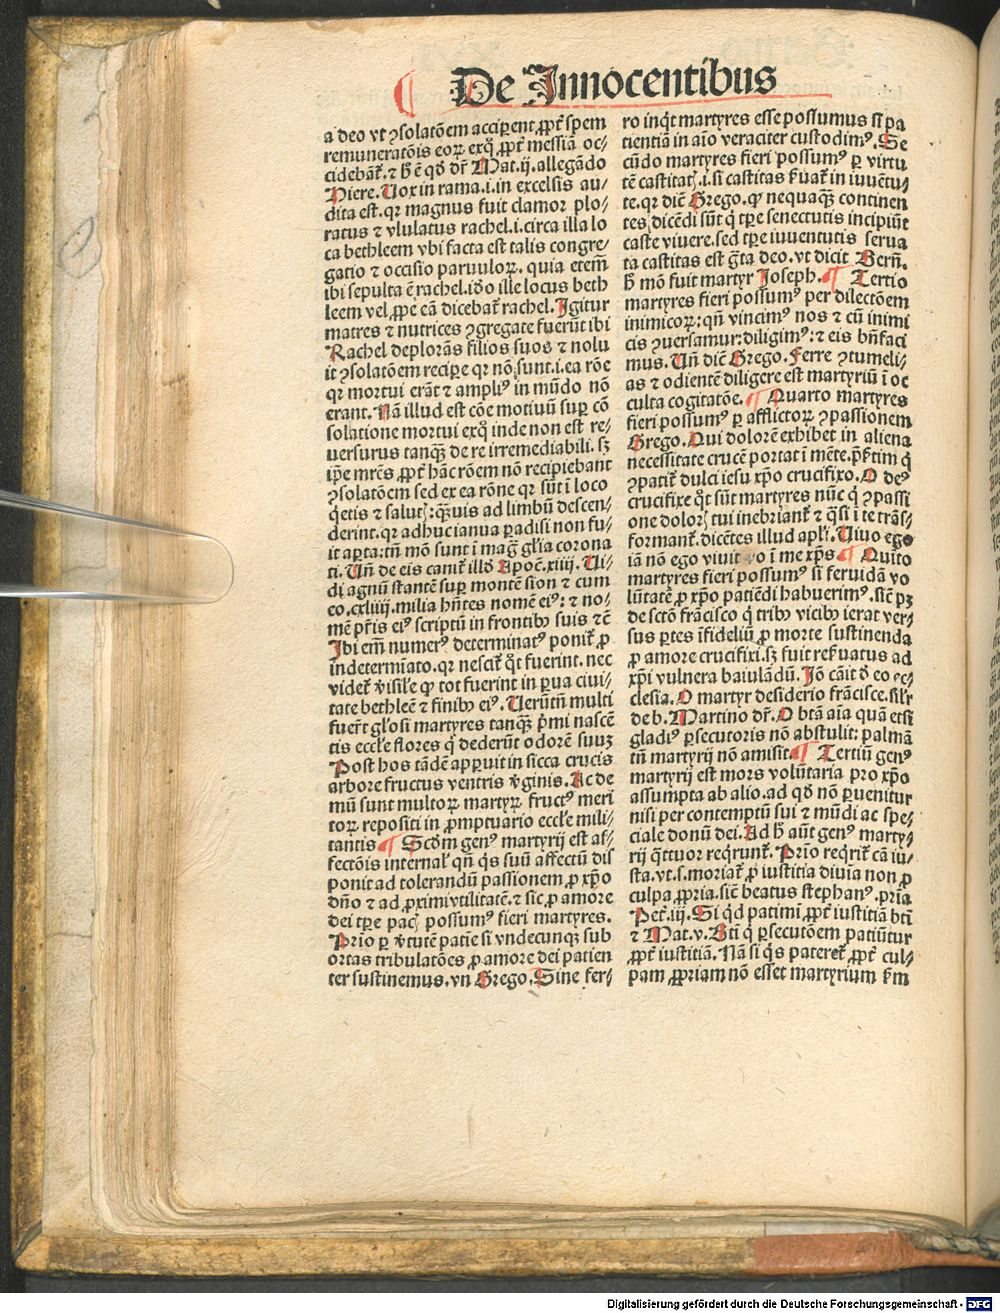 De Innocentibus
a deo vt ꝯsolatōem acciperent ꝓpt̄ spem
remuneratōis eoꝝ exq̊ ꝓpt̄ messiā oc⸗
cidebāt᷑. ⁊ h̄ ē qd̄ dr̄ Mat.ij. allegādo
Hiere. Uox in rama .i. in excelsis au⸗
dita est. qꝛ magnus fuit clamor plo⸗
ratus ⁊ vlulatus rachel .i. circa illa lo
ca bethleem vbi facta est talis congre⸗
gatio ⁊ occisio paruuloꝝ. quia etem̄
ibi sepulta ē rachel. iďo ille locus beth
leem vel ꝓpe eā dicebat᷑ rachel. Igitur
matres ⁊ nutrices ꝯgregate fuerūt ibi
Rachel deplorās filios suos ⁊ nolu
it ꝯsolatōem reciꝑe qꝛ nō sunt .i. ea rōe
qꝛ mortui erāt ⁊ ampliꝰ in mūdo nō
erant. Nā illud est cōe motiuū suꝑ cō
solatione mortui exq̊ inde non est re⸗
uersurus tanqȝ de re irremediabili. sȝ
iꝑe mr̄es ꝓpt̄ hāc rōem nō recipiebant
ꝯsolatōem sed ex ea rōne qꝛ sūt ī loco
q̇etis ⁊ salut᷒: qȝuis ad limbū descen⸗
derint. qꝛ adhuc ianua paradisi non fu⸗
it aꝑta: tn̄ mō sunt ī maḡ gl̄ia corona
ti. Un̄ de eis canit᷑ illď Apoc̄.xiiij. Ui⸗
di agnū stantē suꝑ montē sion ⁊ cum
eo .cxliiij. milia hn̄tes nomē eiꝰ: ⁊ no⸗
mē pr̄is eiꝰ scriptū in frontibꝰ suis ⁊c̄
Ibi em̄ numerꝰ determinatꝰ ponit᷑ ꝓ
indetermīato. qꝛ nescit᷑ q̊t fuerint. nec
videt᷑ v̄isil̄e ꝙ tot fuerint in ꝑua ciui⸗
tate bethleē ⁊ finibꝰ eiꝰ. Uerūtn̄ multi
fuer̄t gl̄osi martyres tanqȝ p̄mi nascē
tis eccl̄e flores q̇ dederūt odorē suuȝ
Post hos tādē apꝑuit in sicca crucis
arbore fructus ventris v̄ginis. Ac de
mū sunt multoꝝ martyꝝ fructꝰ meri
toꝝ repositi in ꝓmptuario eccl̄e mili⸗
tantis ¶ Scďm genꝰ martyrij est af⸗
fectōis internal᷒ qn̄ q̇s suū affectū dis
ponit ad tolerandū passionem ꝓ xp̄o
dn̄o ⁊ ad ꝓximi vtilitatē. ⁊ sic ꝓ amore
dei tꝑe pac᷒ possumꝰ fieri martyres.
Prīo ꝑ v̄tutē patiē si vndecunqꝫ sub
ortas tribulatōes ꝓ amore dei patien
ter sustinemus. vn̄ Grego. Sine fer⸗
ro inq̇t martyres esse possumus si pa
tientiā in aīo veraciter custodimꝰ. Se
cūdo martyres fieri possumꝰ ꝑ virtu
tē castitat᷒ .i. si castitas ẜuat᷑ in iuuētu⸗
te. qꝛ diē Grego. ꝙ nequaqȝ continen
tes dicēdi sūt q̇ tꝑe senectutis incipiūt
caste viuere. sed tꝑe iuuentutis serua
ta castitas est gr̄ta deo. vt dicit Bern̄.
h̊ mō fuit martyr Joseph. ¶ Tertio
martyres fieri possumꝰ per dilectōem
inimicoꝝ: qn̄ vincimꝰ nos ⁊ cū inimi
cis ꝯuersamur: diligimꝰ: ⁊ eis bn̄faci
mus. Un̄ diē Grego. Ferre ꝯtumeli⸗
as ⁊ odientē diligere est martyriū ī oc
culta cogitatōe. ¶ Quarto martyres
fieri possumꝰ ꝑ afflictoꝝ ꝯpassionem
Grego. Qui dolorē exhibet in aliena
necessitate crucē portat ī mēte. p̄ẜtim q̇
ꝯpatit᷑ dulci iesu xp̄o crucifixo. O deꝰ
crucifixe q̊t sūt martyres nūc q̇ ꝯpassi
one dolor᷒ tui inebriant᷑ ⁊ q̄si ī te trās⸗
formant᷑. dicētes illud apl̄i. Uiuo ego
iā nō ego viuit vo ī me xp̄s ¶ Quīto
martyres fieri possumꝰ si feruidā vo
lūtatē ꝓ xp̄o patiēdi habuerimꝰ. sic̄ pȝ
de sctō frācisco q̇ tribꝰ vicibꝰ ierat ver⸗
sus ꝑtes īfideliū ꝓ morte sustinenda
ꝓ amore crucifixi. sȝ fuit reẜuatus ad
xp̄i vulnera baiulādū. Iō cāit ď eo ec⸗
clesia. O martyr desiderio frācisce. sil̄r
de b. Martino dr̄. O btā aīa quā etsi
gladiꝰ ꝑsecutoris nō abstulit: palmā
tn̄ martyrij nō amisit. ¶ Tertiū genꝰ
martyrij est mors volūtaria pro xp̄o
assumpta ab alio. ad qd̄ nō ꝑuenitur
nisi per contemptū sui ⁊ mūdi ac spe⸗
ciale donū dei. Ad h̊ aūt genꝰ marty⸗
rij q̄ttuor reqrunt᷑. Prīo reqrit᷑ cā iu⸗
sta. vt .s. moriat᷑ ꝓ iustitia diuīa non ꝓ
culpa ꝓpria. sic̄ beatus stephanꝰ. prīa
Pet᷑.iij. Si q̇d patimī ꝓpt̄ iustitiā bt̄i
⁊ Mat.v. Bt̄i q̇ ꝑsecutōem patiūtur
ꝓpt̄ iustitiā. Nā si q̇s pateret᷑ ꝓpt̄ cul⸗
pam ꝓpriam nō esset martyrium ẜm
Digitalisierung gefördert durch die Deutsche Forschungsgemeinschaft - DFG